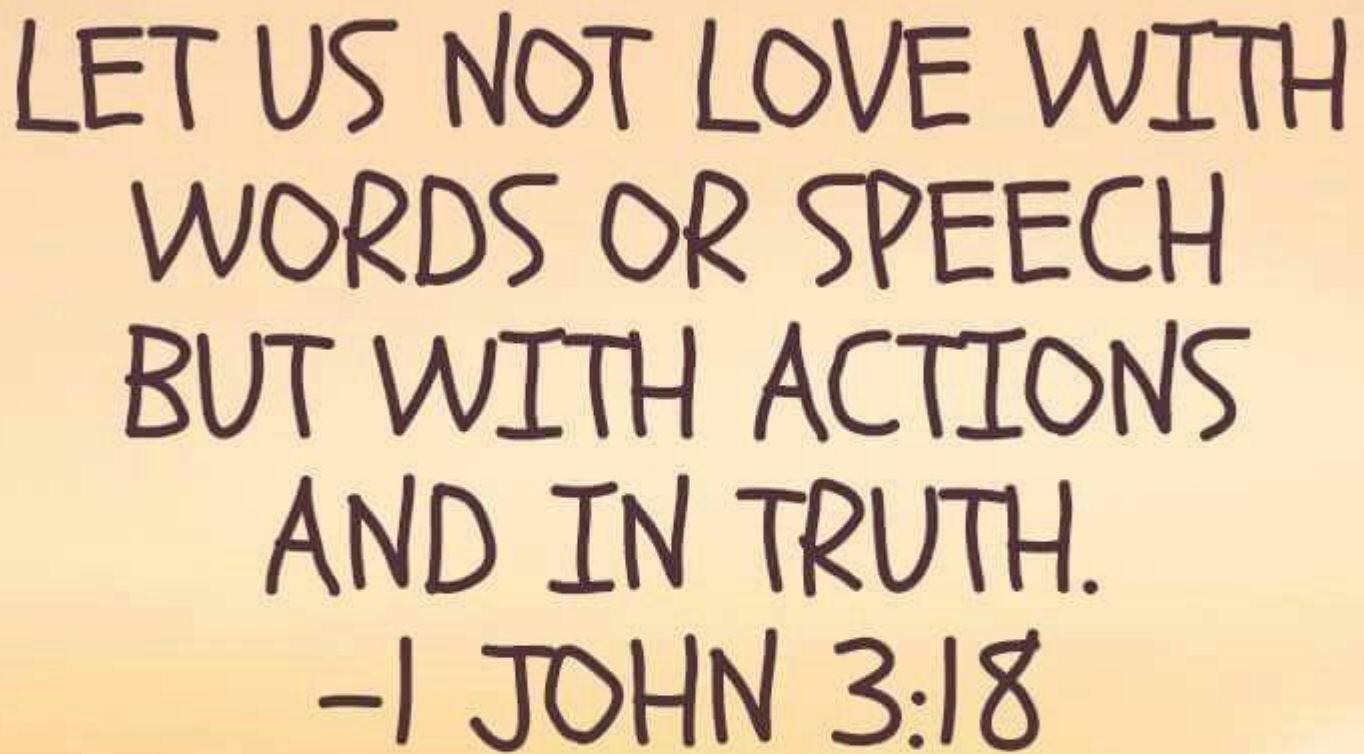 LET US NOT LOVE WITH
WORDS OR SPEECH
BUT WITH ACTIONS
AND IN TRUTH.
-1 JOHN 3:18